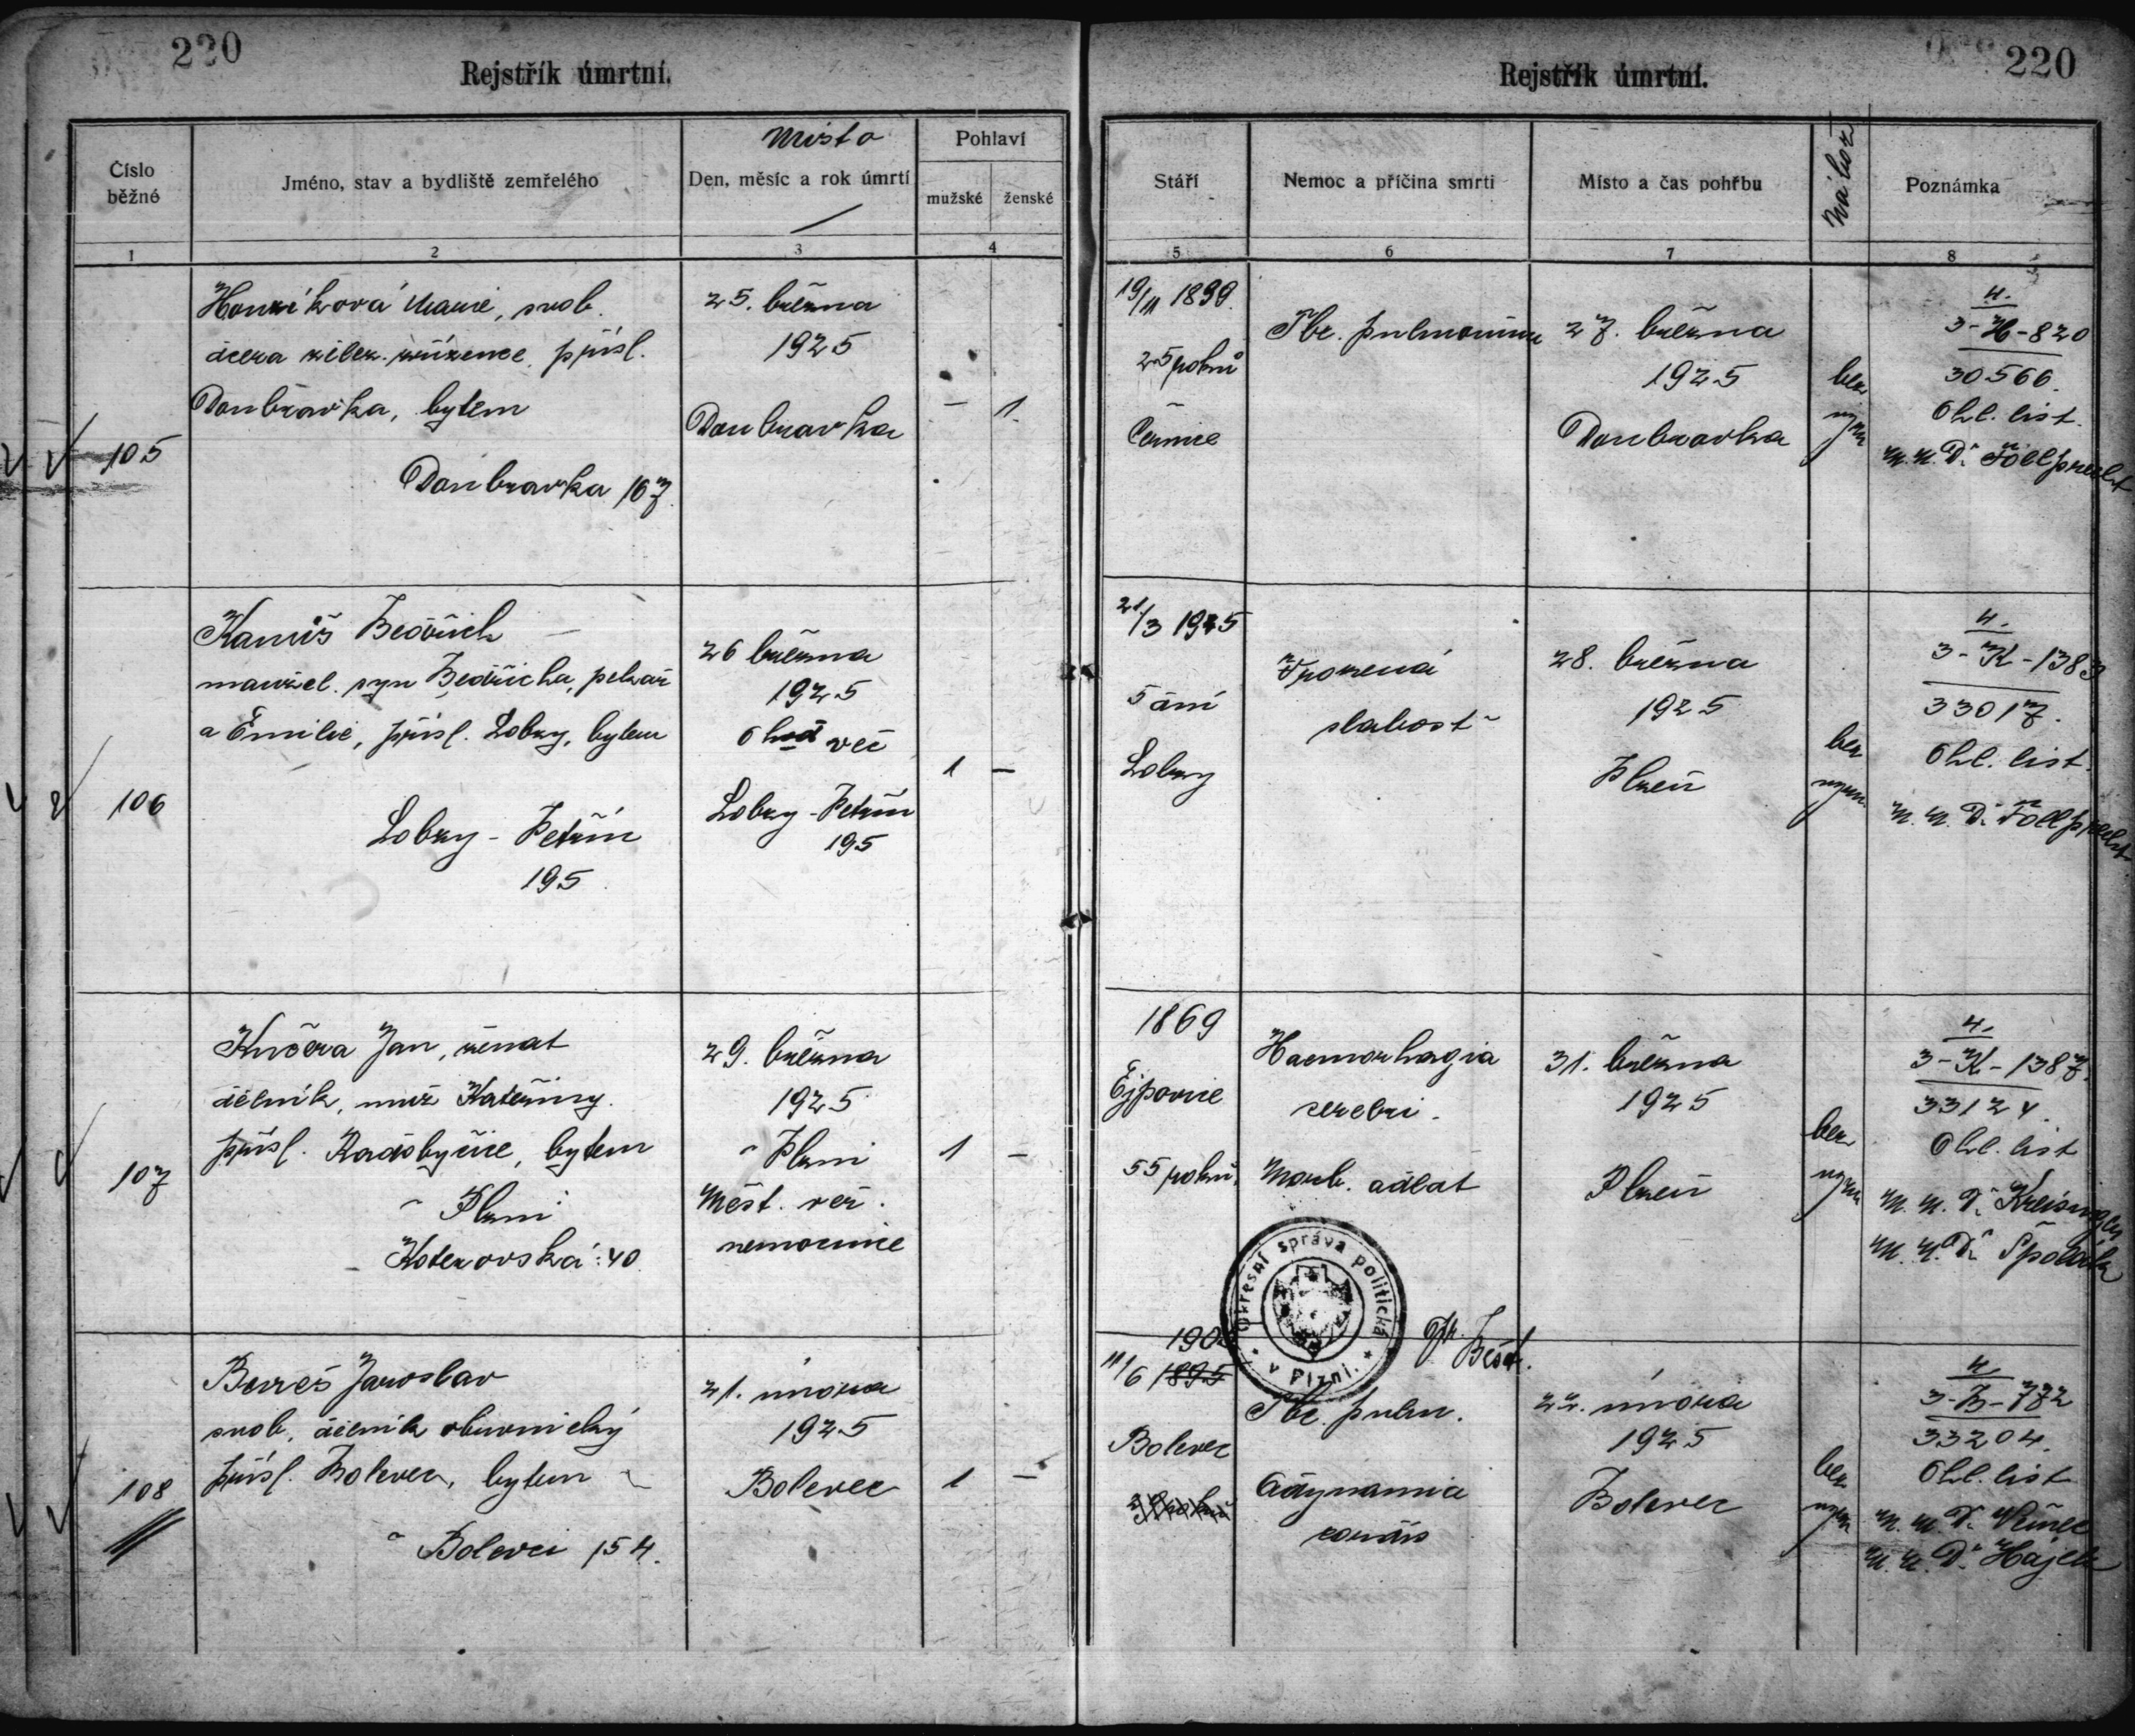 220
Rejstřík úmrtní.
Číslo běžné
Jméno, stav a bydliště zemřelého
Místo
Den, měsíc a rok úmrtí
Pohlaví
mužské
ženské
1
2
3
4
105
Honzíková Marie, svob.
dcera želez. zřízence, přísl.
Doubravka, bytem
Doubravka 167.
25. března
1925
Doubravka
– 1
106
Kaniš Bedřich
manžel. syn Bedřicha, pekaře
a Emilie, přísl. Lobzy, bytem
Lobzy - Petřín
195
26 března
1925
6 hod več
Lobzy - Petřín
195
1 –
107
Kučera Jan, ženat
dělník, muž Kateřiny.
přísl. Radobyčice, bytem
v Plzni
Koterovská: 40
29. března
1925
v Plzni
Měst. veř.
nemocnice
1 –
108
Bereš Jaroslav
svob, dělník obuvnický
přísl. Bolevec, bytem
v Bolevci 154.
21. února
1925
Bolevec
1 –
220
Rejstřík úmrtní.
Stáří
Nemoc a příčina smrti
Místo a čas pohřbu
Nábož
Poznámka
5
6
7
8
19/11 1899.
25 roků
Černice
Tbc. pulmonum
27. března
1925
Doubravka
bez
vyzn
4.
3-H-820
30566.
Ohl. list.
M. U. Dr.
21/3 1925
5 dní
Lobzy
Vrozená
slabost
28. března
1925
Plzeň
bez
vyzn.
4.
3-K-1383
33017.
Ohl. list.
M. U. Dr.
1869
Ejpovice
55 roků.
Haemorhagia
cerebri.
Morb. adlat
31. března
1925
Plzeň
bez
vyzn
4.
3-K-1387.
33124.
Ohl. list
M. U. Dr. Kreisinger
M. U. Dr. Špolák
Okresní správa politická
* v Plzni. *
11/6 1895
Bolevec
Tbc. pulm.
Adynamia
cordis
22. února
1925
Bolevec
bez
vyzn
4.
3-B-772
33204.
Ohl. list
M. U. Dr.
M. U. Dr. Hájek